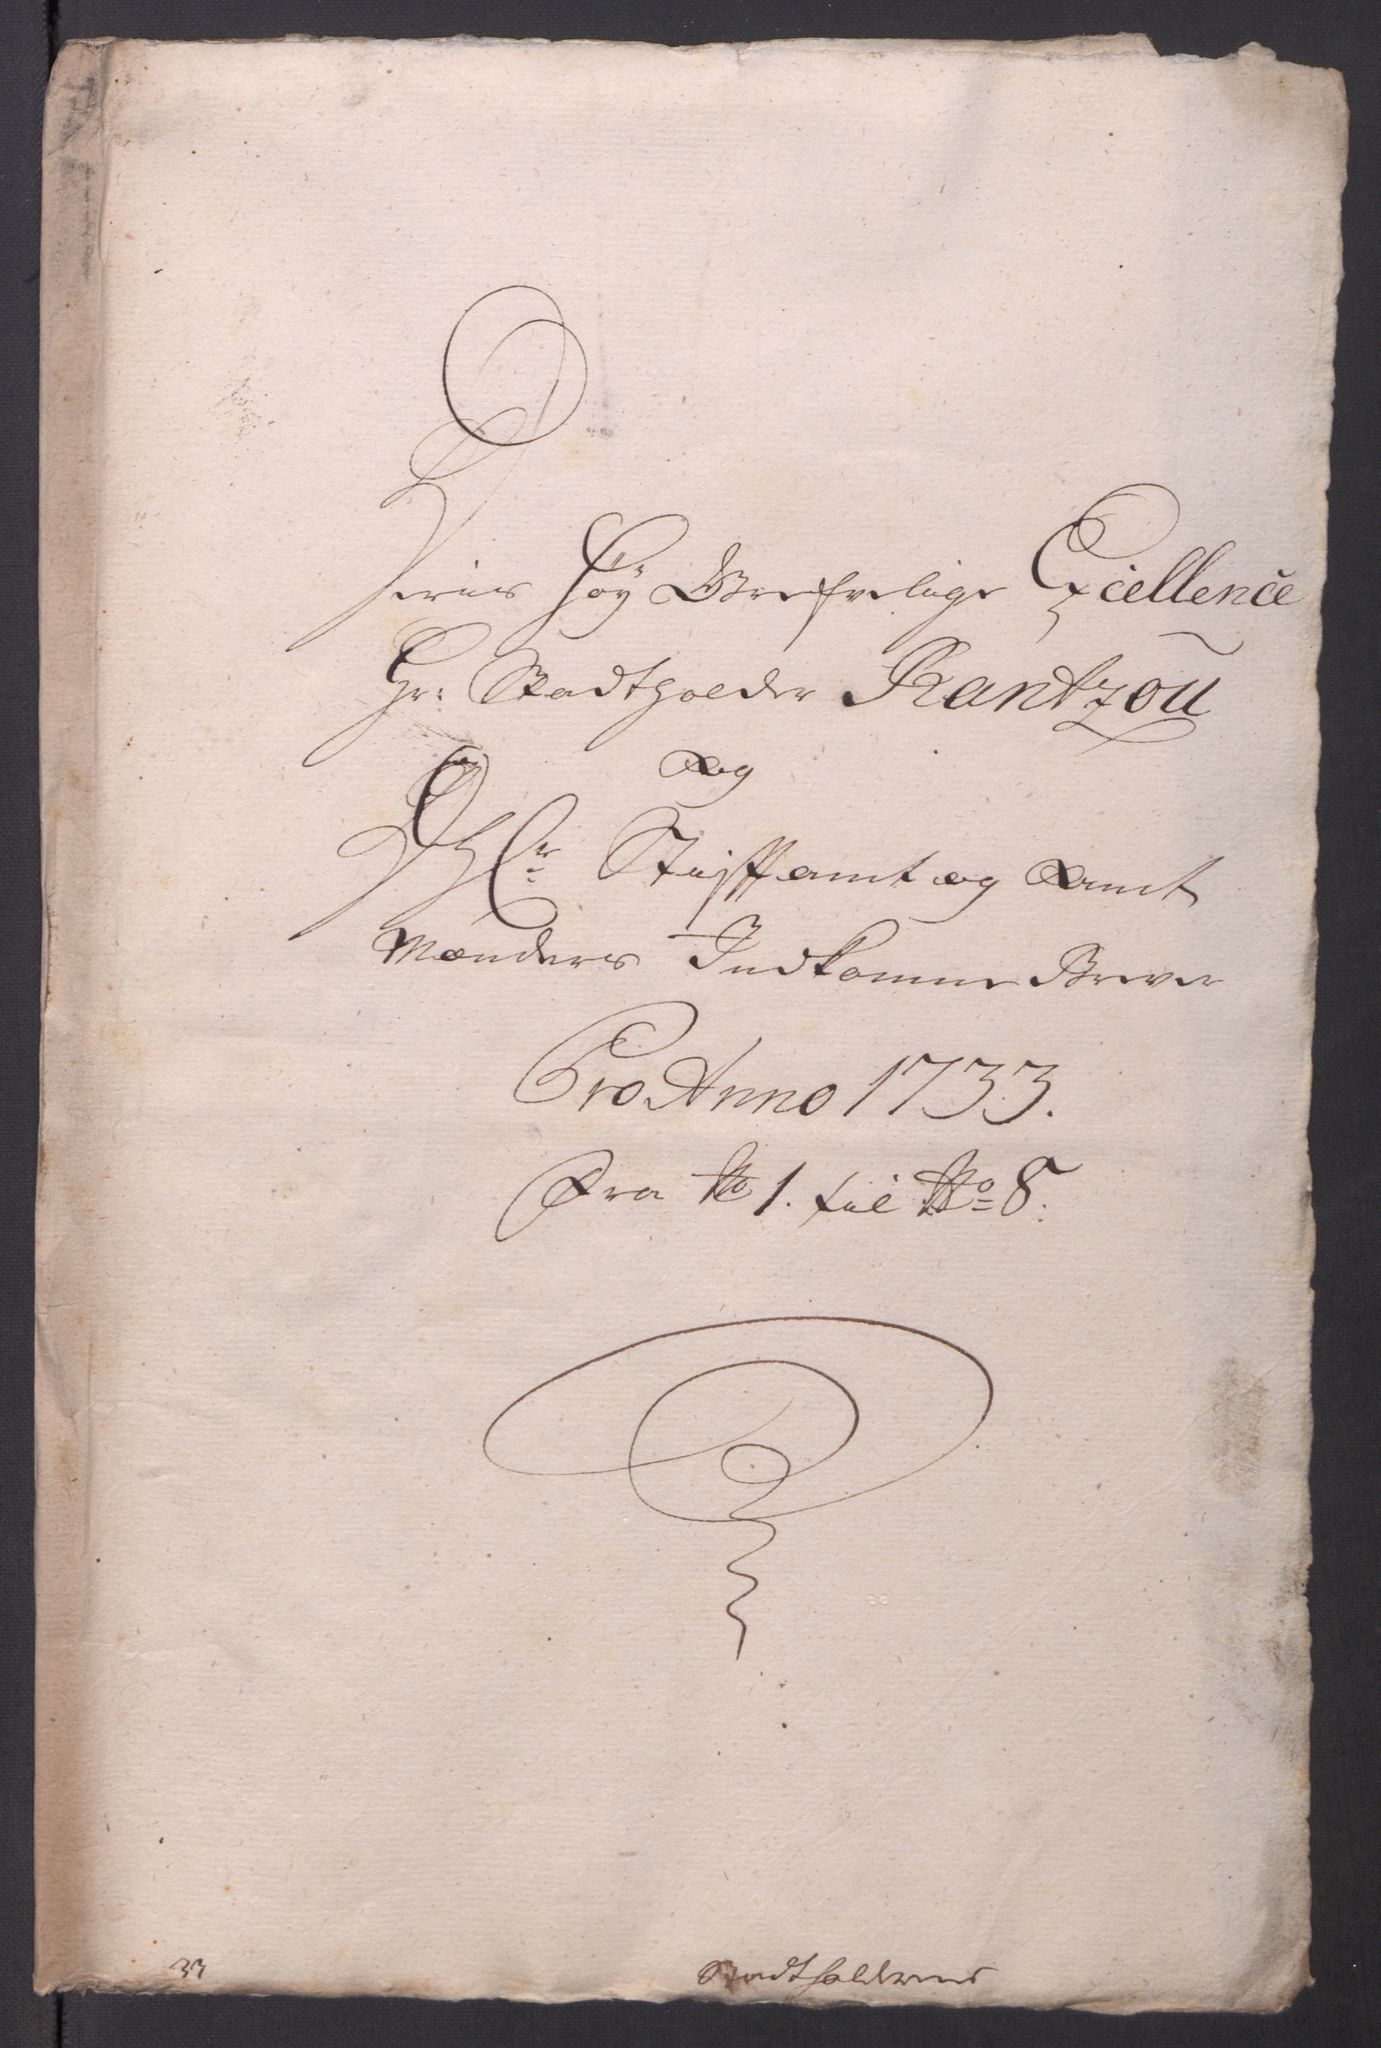 Hans Høy Grefvelige Excellence
Hr: Stadtholder Rantzou
og
Hr Stiftamt og Amt
Mænders Indkomne Brever
Pro Anno 1733.
Fra No 1. til No 8.
33
Stadtholderens